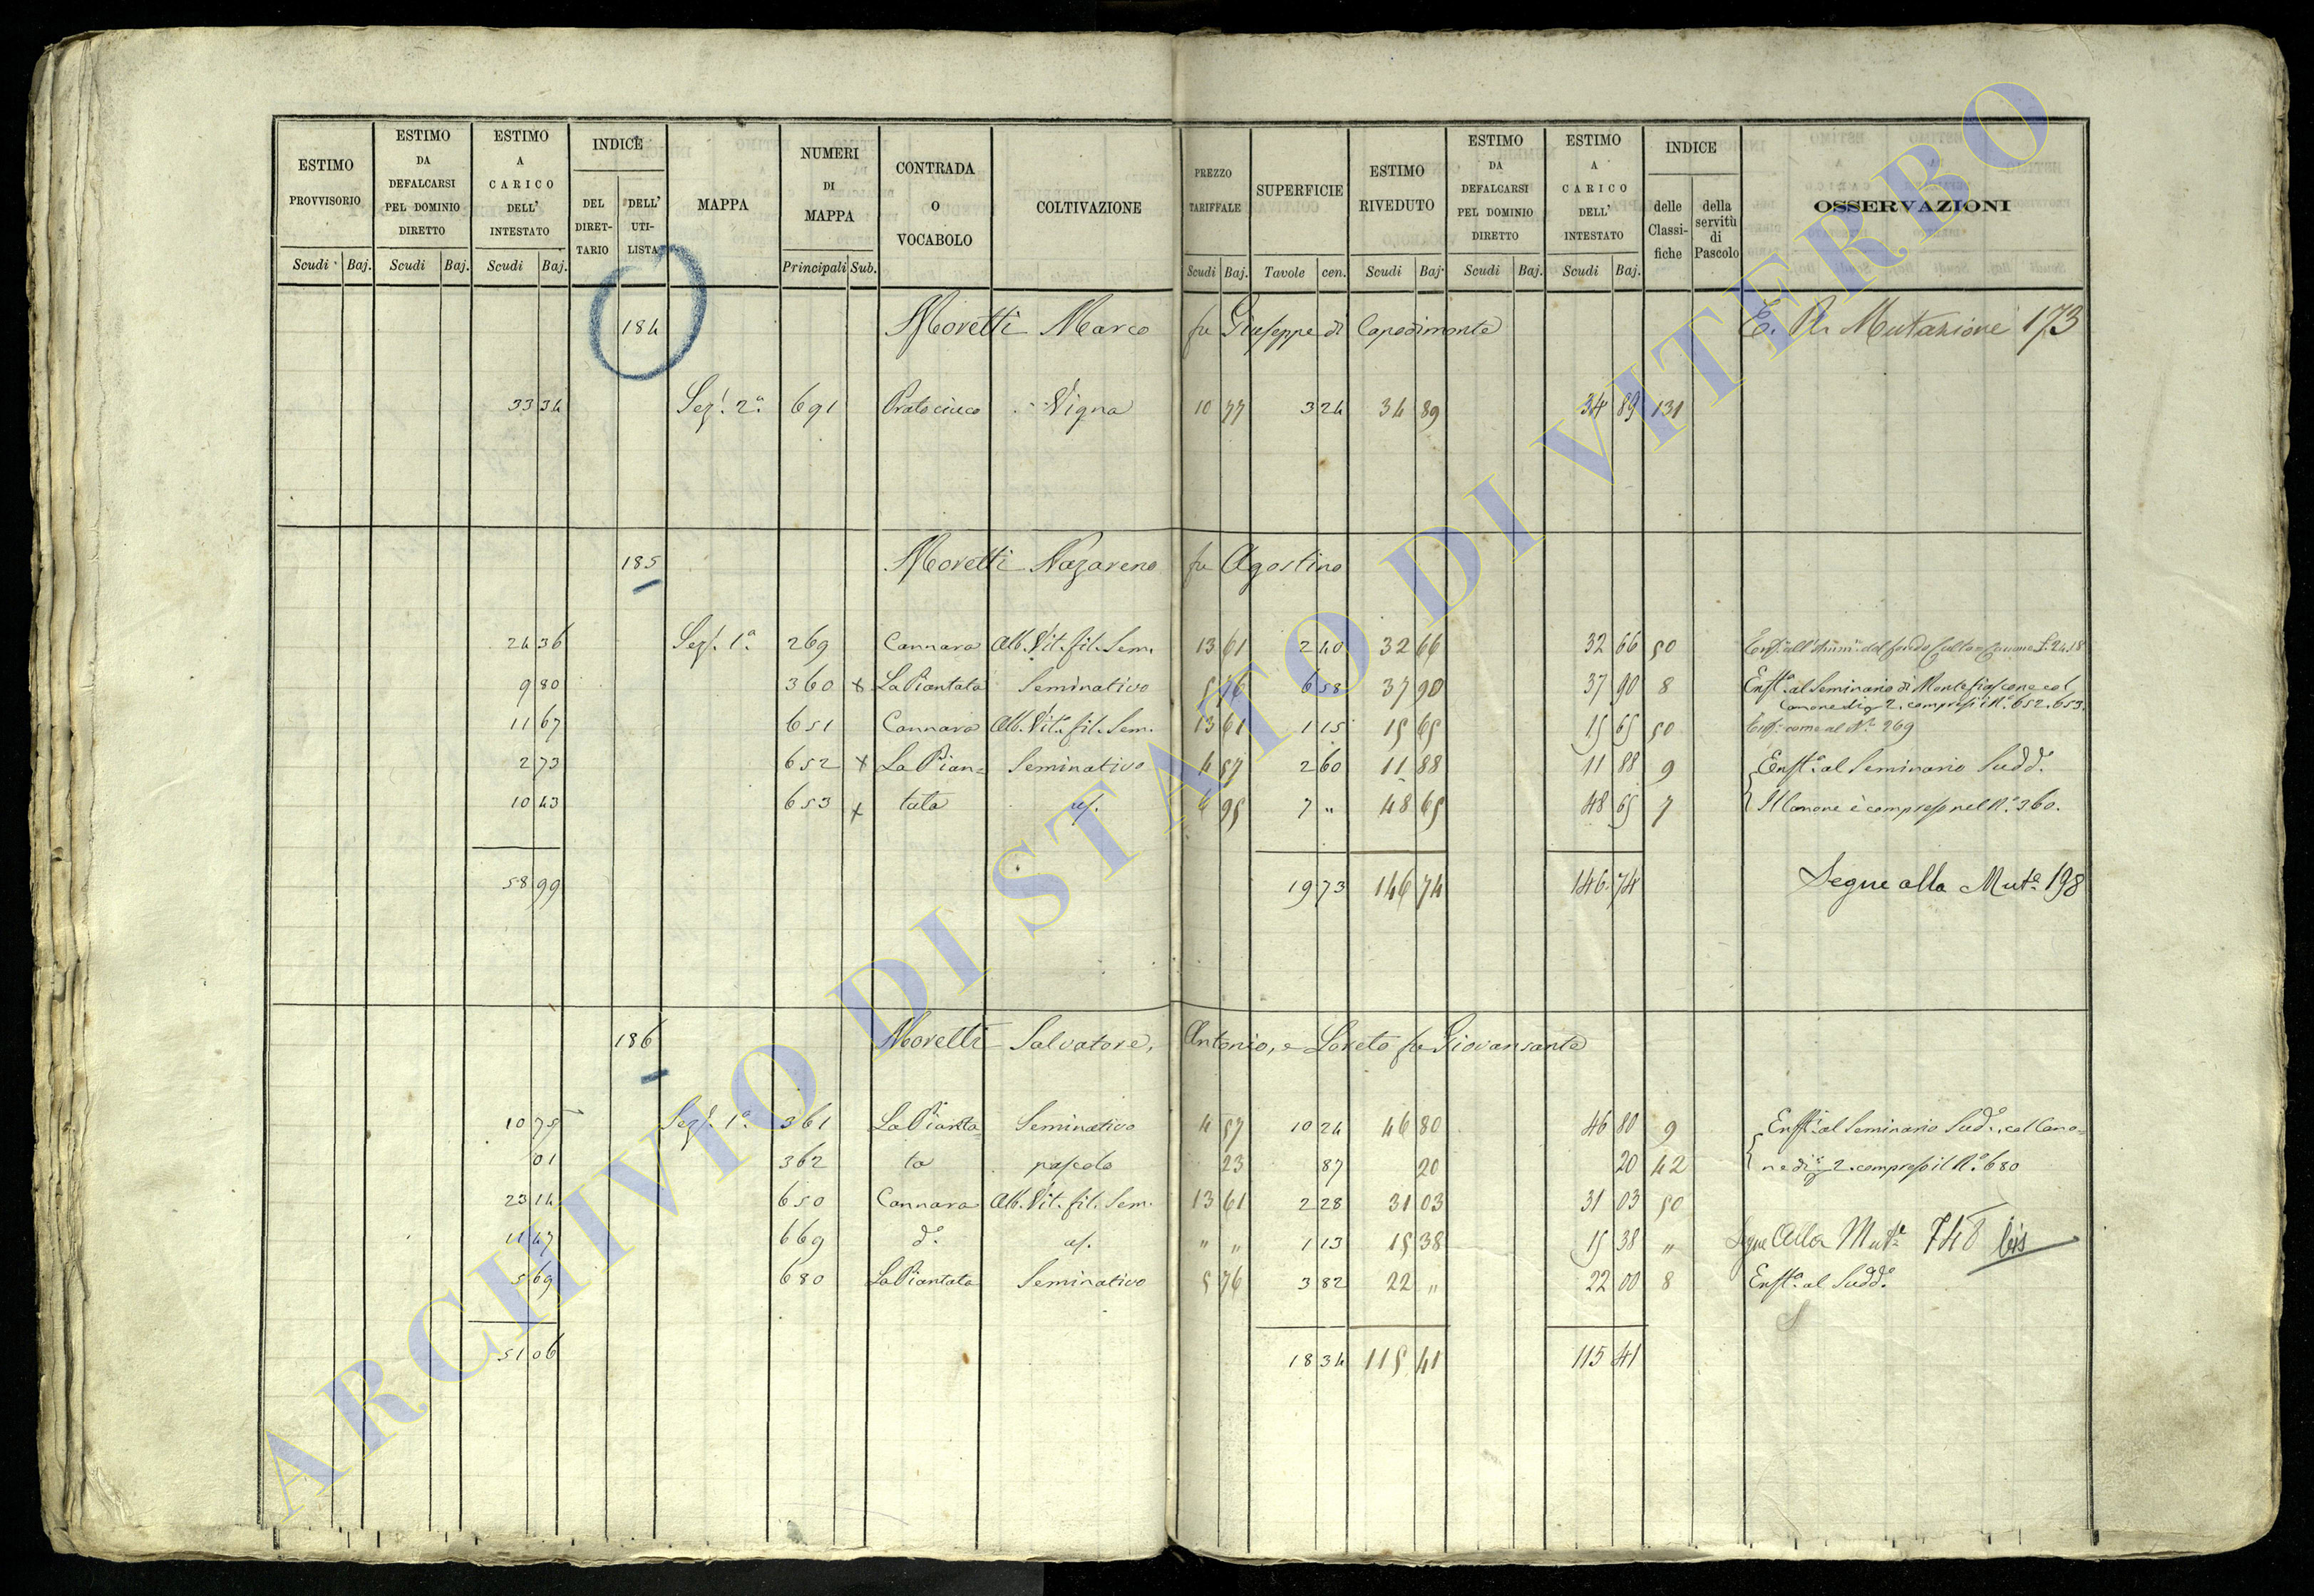 ESTIMO PROVVISORIO | ESTIMO DA DEFALCARSI PEL DOMINIO DIRETTO | ESTIMO A CARICO DELL' INTESTATO | INDICE | MAPPA | NUMERI DI MAPPA | CONTRADA O VOCABOLO | COLTIVAZIONE | PREZZO TARIFFALE | SUPERFICIE | ESTIMO RIVEDUTO | ESTIMO DA DEFALCARSI PEL DOMINIO DIRETTO | ESTIMO A CARICO DELL' INTESTATO | INDICE | OSSERVAZIONI
DEL DIRETTARIO | DELL' UTILISTA | delle Classifiche | della servitù di Pascolo
Scudi Baj. | Scudi Baj. | Scudi Baj. | Principali Sub. | Scudi Baj. | Tavole cen. | Scudi Baj. | Scudi Baj. | Scudi Baj.
184 Moretti Marco fu Giuseppe di Capodimonte E. Mutazione 173
33 34 Sez. 2ª 691 Vigna 10 77 3 24 34 89 34 89 131
185 Moretti Nazareno fu Agostino
24 36 Sez. 1ª 269 Cannara Alb. Vit. fil. Sem. 13 61 2 40 32 66 32 66 50
9 80 360 x La Piantata Seminativo 5 76 6 58 37 90 37 90 8 Enfta. al Seminario di Montefiascone col
Canone di 2. compresi i N° 652. 653.
11 67 651 Cannara Alb. Vit. fil. Sem. 13 61 1 15 15 65 15 65 50 Enf. come al N° 269
2 73 652 x La Pian= Seminativo 4 57 2 60 11 88 11 88 9 Enfta. al Seminario Sudd°.
10 43 653 x tata id. 6 95 7 " 48 65 48 65 7 Il Canone è compreso nel N° 360.
58 99 19 73 146 74 146 74 Segue alla Muta. 198
186 Moretti Salvatore, Antonio, e Loreto fu Giovansante
10 75 Sez. 1ª 361 La Pianta= Seminativo 4 57 10 24 46 80 46 80 9 Enfta. al Seminario Sud°. col Cano=
01 362 ta pascolo 23 87 20 20 42 ne di 2. compreso il N° 680
23 14 650 Cannara Alb. Vit. fil. Sem. 13 61 2 28 31 03 31 03 50
11 47 669 d° id. " " 1 13 15 38 15 38 " Segue Alla Muta. 748 bis
5 69 680 La Piantata Seminativo 5 76 3 82 22 " 22 00 8 Enfta. al Sudd°.
51 06 18 34 115 41 115 41
ARCHIVIO DI STATO DI VITERBO